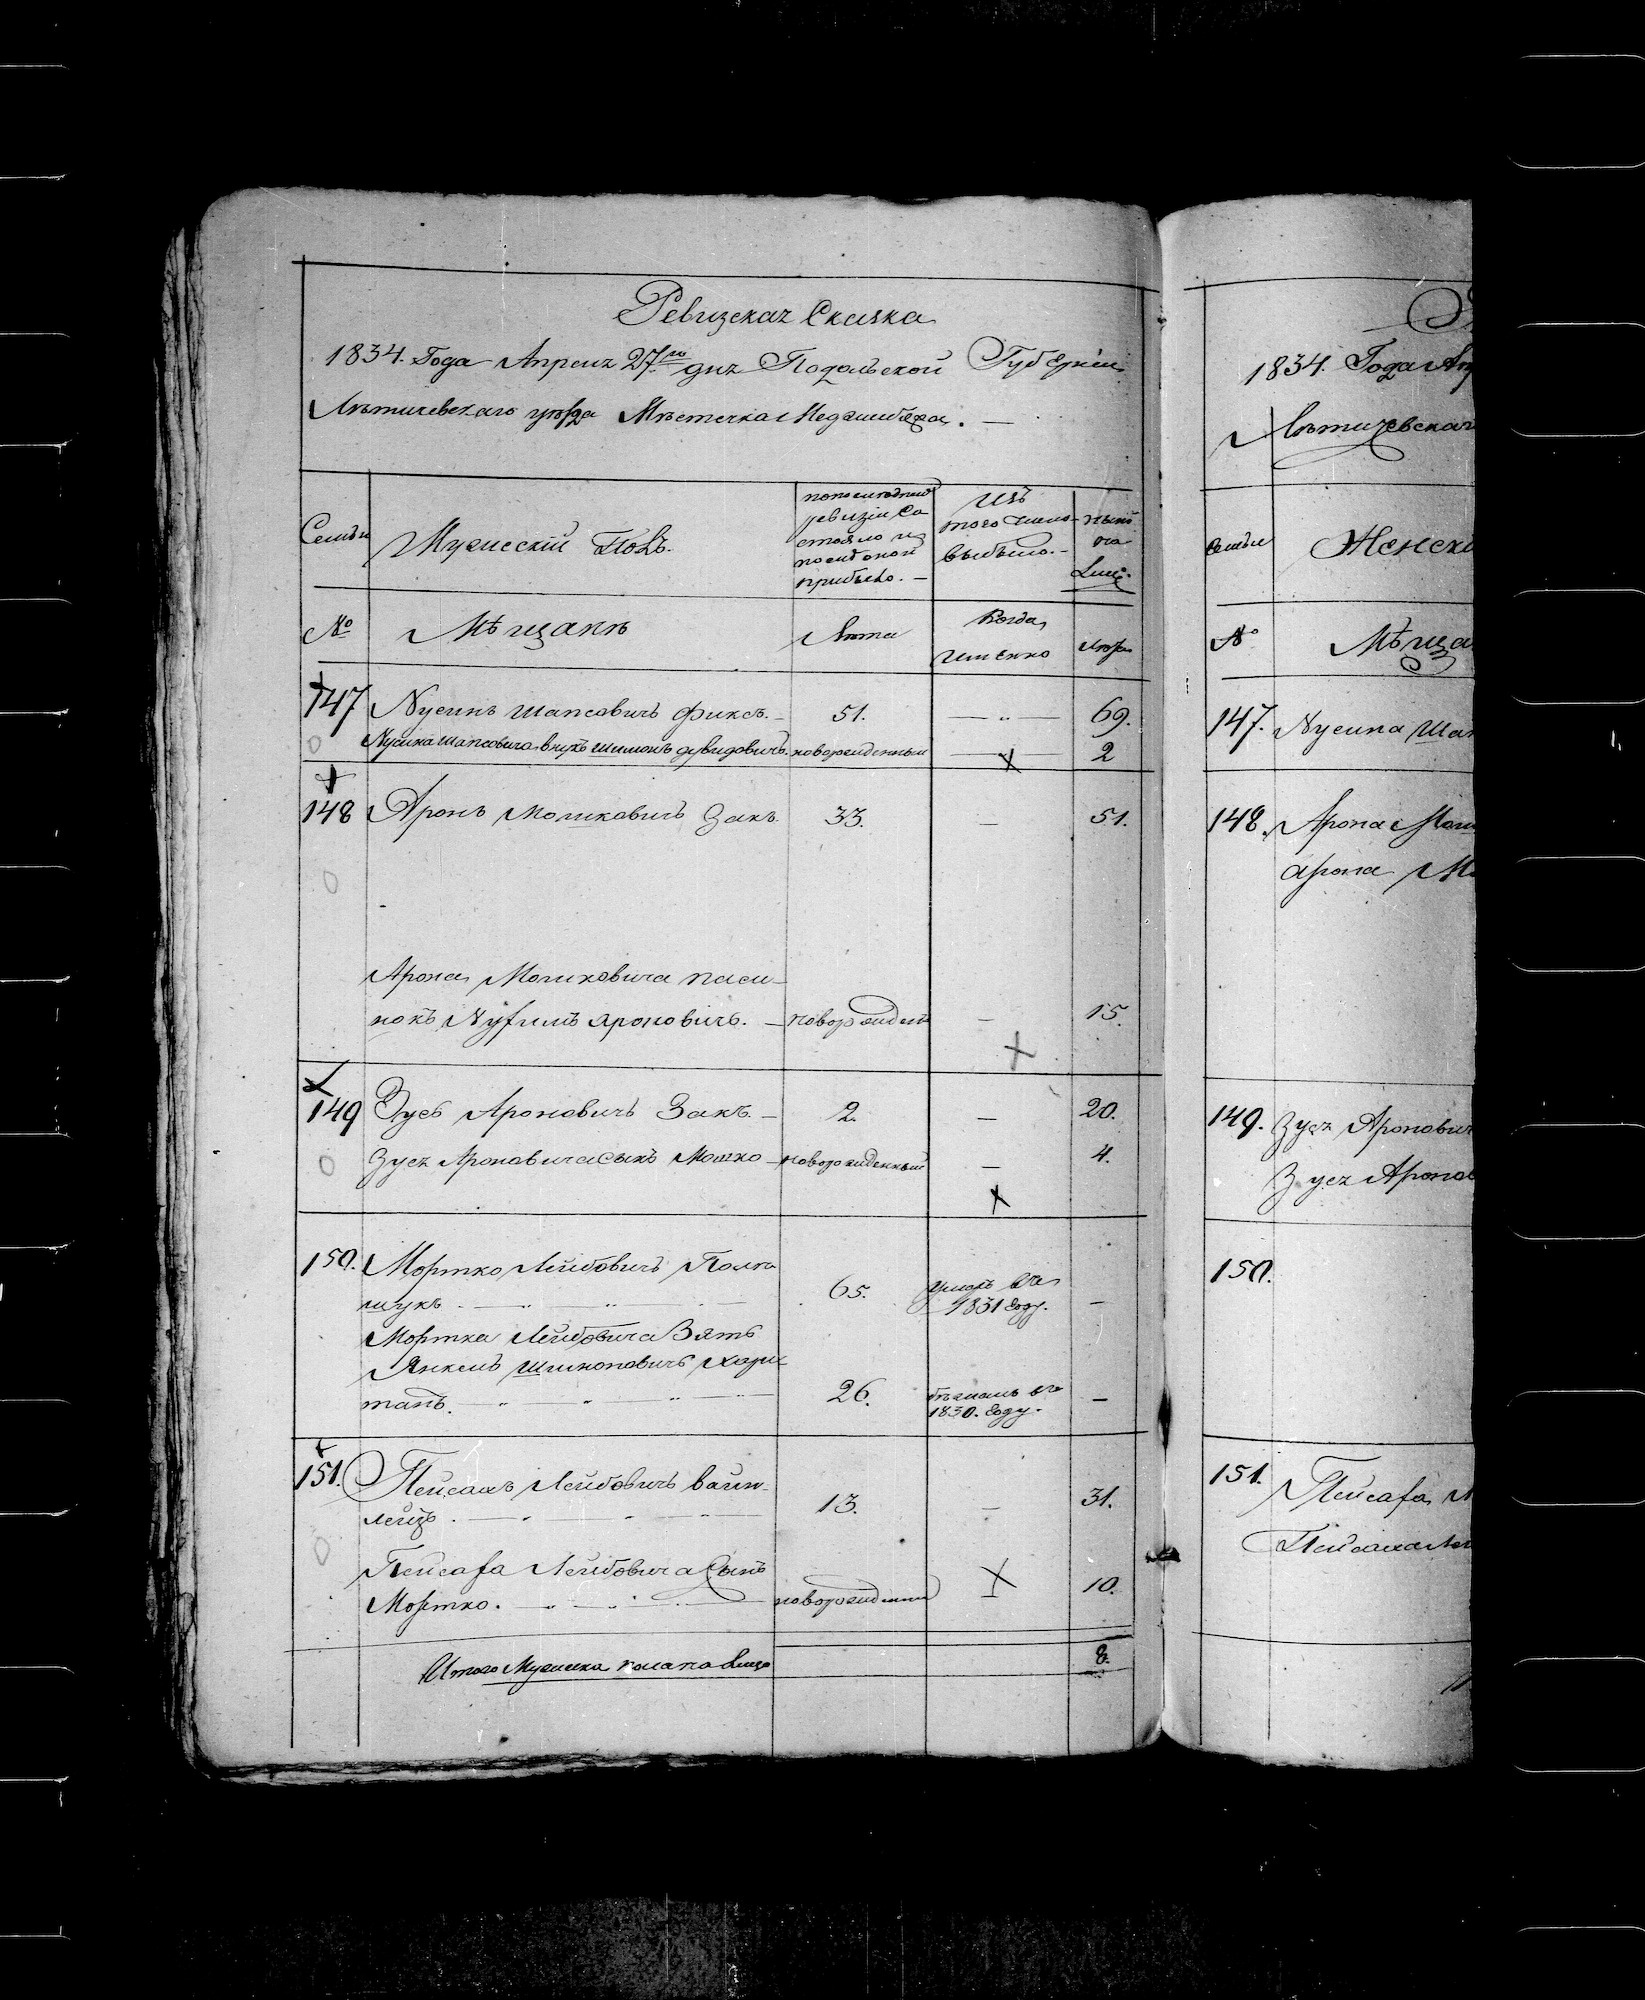 Ревизская Сказка
1834. Года Апреля 27го дня Подольской Губернии
Лѣтичевскаго уѣзда Мѣстечка Меджибожа. —
Семьи
Мужескій Полъ.
по последней
ревизіи со
стояло и
после оной
прибыло. —
Изъ
того числа
выбыло. —
ныне
на
лице.
№
Мѣщане
Лѣта
Когда
именно
Лѣта
147 Нусинъ Шапсовичъ Фиксъ. — 51. — „ — 69.
Нусина Шапсовича внукъ Шимонъ Дувидовичъ. новорожденный — 2
148 Аронъ Мошковичъ Закъ 33. — 51.
Арона Мошковича паси-
нокъ Ароновичъ. — новорожден — 15.
149 Зусь Ароновичъ Закъ. — 2. — 20.
Зуся Ароновича сынъ Мошко — новорожденный — 4.
150. Мортко Лейбовичъ Поли
щукъ. — „ „ — 65. умеръ въ
1831 году. —
Мортка Лейбовича Зять
Янкель Шимоновичъ
танъ. — „ — „ — „ — 26. бѣжалъ въ
1830. году. —
151. Пейсахъ Лейбовичъ Вайн-
лейзъ. — „ — „ — „ — 13. — 31.
Пейсаха Лейбовича Сынъ
Мортко. — „ — „ — новорожденный — 10.
Итого Мужеска пола на лицо 8.
1834. Года Ап
Лѣтичевскаг
семьи
Женск
№
Мѣща
147. Нусина Ша
148. Арона Мош
Арона М
149. Зуся Аронович
Зуся Аронов
150.
151. Пейсаха Л
Пейсаха Ле